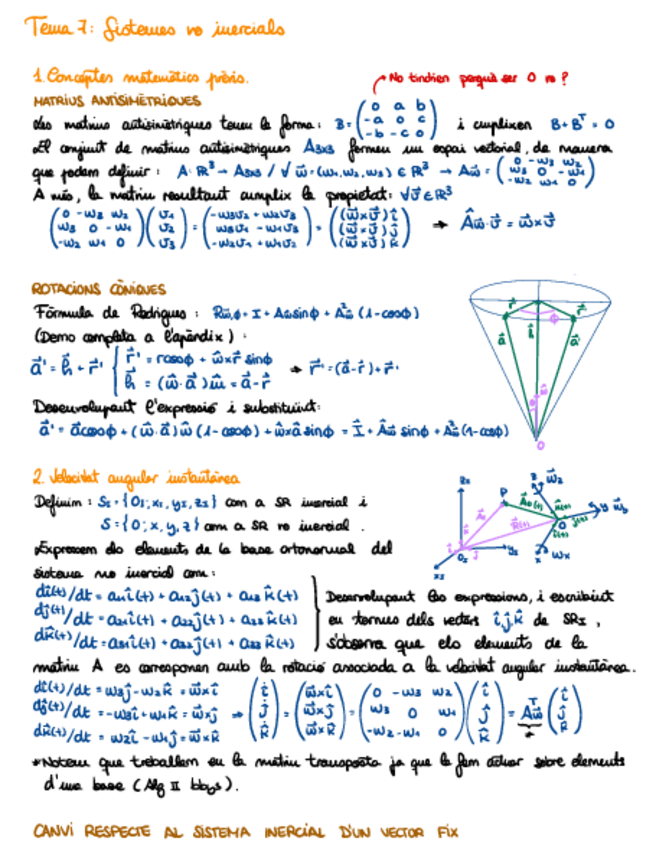 Tema 7: Sistemes no inercials
1. Conceptes matemàtics previs.
No tindrien perquè ser 0 no?
MATRIUS ANTISIMÈTRIQUES
Les matrius antisimètriques tenen la forma: B = ( 0 a b / -a 0 c / -b -c 0 ) i cumplixen B + Bᵀ = 0
El conjunt de matrius antisimètriques A₃ₓ₃ formen un espai vectorial, de manera
que podem definir: A: ℝ³ → A₃ₓ₃ / ∀ w⃗ = (w₁, w₂, w₃) ∈ ℝ³ → Aw⃗ = ( 0 -w₃ w₂ / w₃ 0 -w₁ / -w₂ w₁ 0 )
A més, la matriu resultant cumplix la propietat: ∀v⃗ ∈ ℝ³
( 0 -w₃ w₂ / w₃ 0 -w₁ / -w₂ w₁ 0 ) ( v₁ / v₂ / v₃ ) = ( -w₃v₂ + w₂v₃ / w₃v₁ - w₁v₃ / -w₂v₁ + w₁v₂ ) = ( (w⃗×v⃗)î / (w⃗×v⃗)ĵ / (w⃗×v⃗)k̂ ) → Âw⃗·v⃗ = w⃗×v⃗
ROTACIONS CÒNIQUES
Fórmula de Rodrigues: Rw⃗,ϕ = I + Aw⃗ sinϕ + A²w⃗ (1-cosϕ)
(Demo completa a l'apèndix):
a⃗' = h⃗ + r⃗' { r⃗' = r cosϕ + ŵ×r⃗ sinϕ
h⃗ = (ŵ·a⃗)ŵ = a⃗-r⃗ → r⃗' = (a⃗-r⃗)+r⃗'
Desenvolupant l'expressió i substituint:
a⃗' = a⃗cosϕ + (ŵ·a⃗)ŵ (1-cosϕ) + ŵ×a⃗ sinϕ = I + Âw⃗ sinϕ + Â²w⃗ (1-cosϕ)
2. Velocitat angular instantània
Definim: S_I = {O_I; x_I, y_I, z_I} com a SR inercial i
S = {O; x, y, z} com a SR no inercial.
Expressem els elements de la base ortonormal del
sistema no inercial com:
dî(t)/dt = a₁₁î(t) + a₁₂ĵ(t) + a₁₃k̂(t)
dĵ(t)/dt = a₂₁î(t) + a₂₂ĵ(t) + a₂₃k̂(t)
dk̂(t)/dt = a₃₁î(t) + a₃₂ĵ(t) + a₃₃k̂(t)
Desenvolupant les expressions, i escribint
en termes dels vectors î, ĵ, k̂ de SR_I,
s'observa que els elements de la
matriu A es corresponen amb la rotació associada a la velocitat angular instantània.
dî(t)/dt = w₃ĵ - w₂k̂ = w⃗×î
dĵ(t)/dt = -w₃î + w₁k̂ = w⃗×ĵ
dk̂(t)/dt = w₂î - w₁ĵ = w⃗×k̂
→ ( î / ĵ / k̂ ) = ( w⃗×î / w⃗×ĵ / w⃗×k̂ ) = ( 0 -w₃ w₂ / w₃ 0 w₁ / -w₂ -w₁ 0 ) ( î / ĵ / k̂ ) = Aᵀw⃗ ( î / ĵ / k̂ )
*
*Notem que treballem en la matriu transposta ja que la fem actuar sobre elements
d'una base (Alg II bbys).
CANVI RESPECTE AL SISTEMA INERCIAL D'UN VECTOR FIX